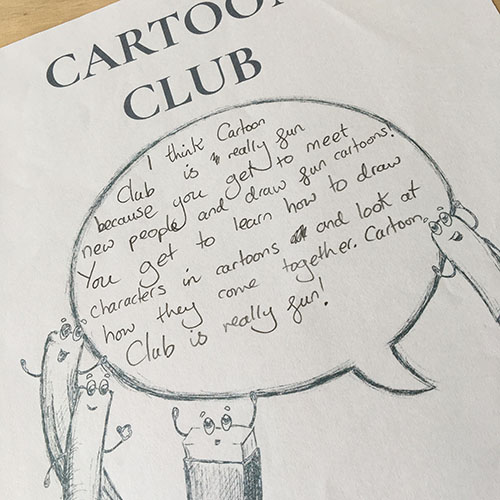 CARTOON
CLUB
I think Cartoon
Club is really fun
because you get to meet
new people and draw fun cartoons!
You get to learn how to draw
characters in cartoons and look at
how they come together. Cartoon
Club is really fun!